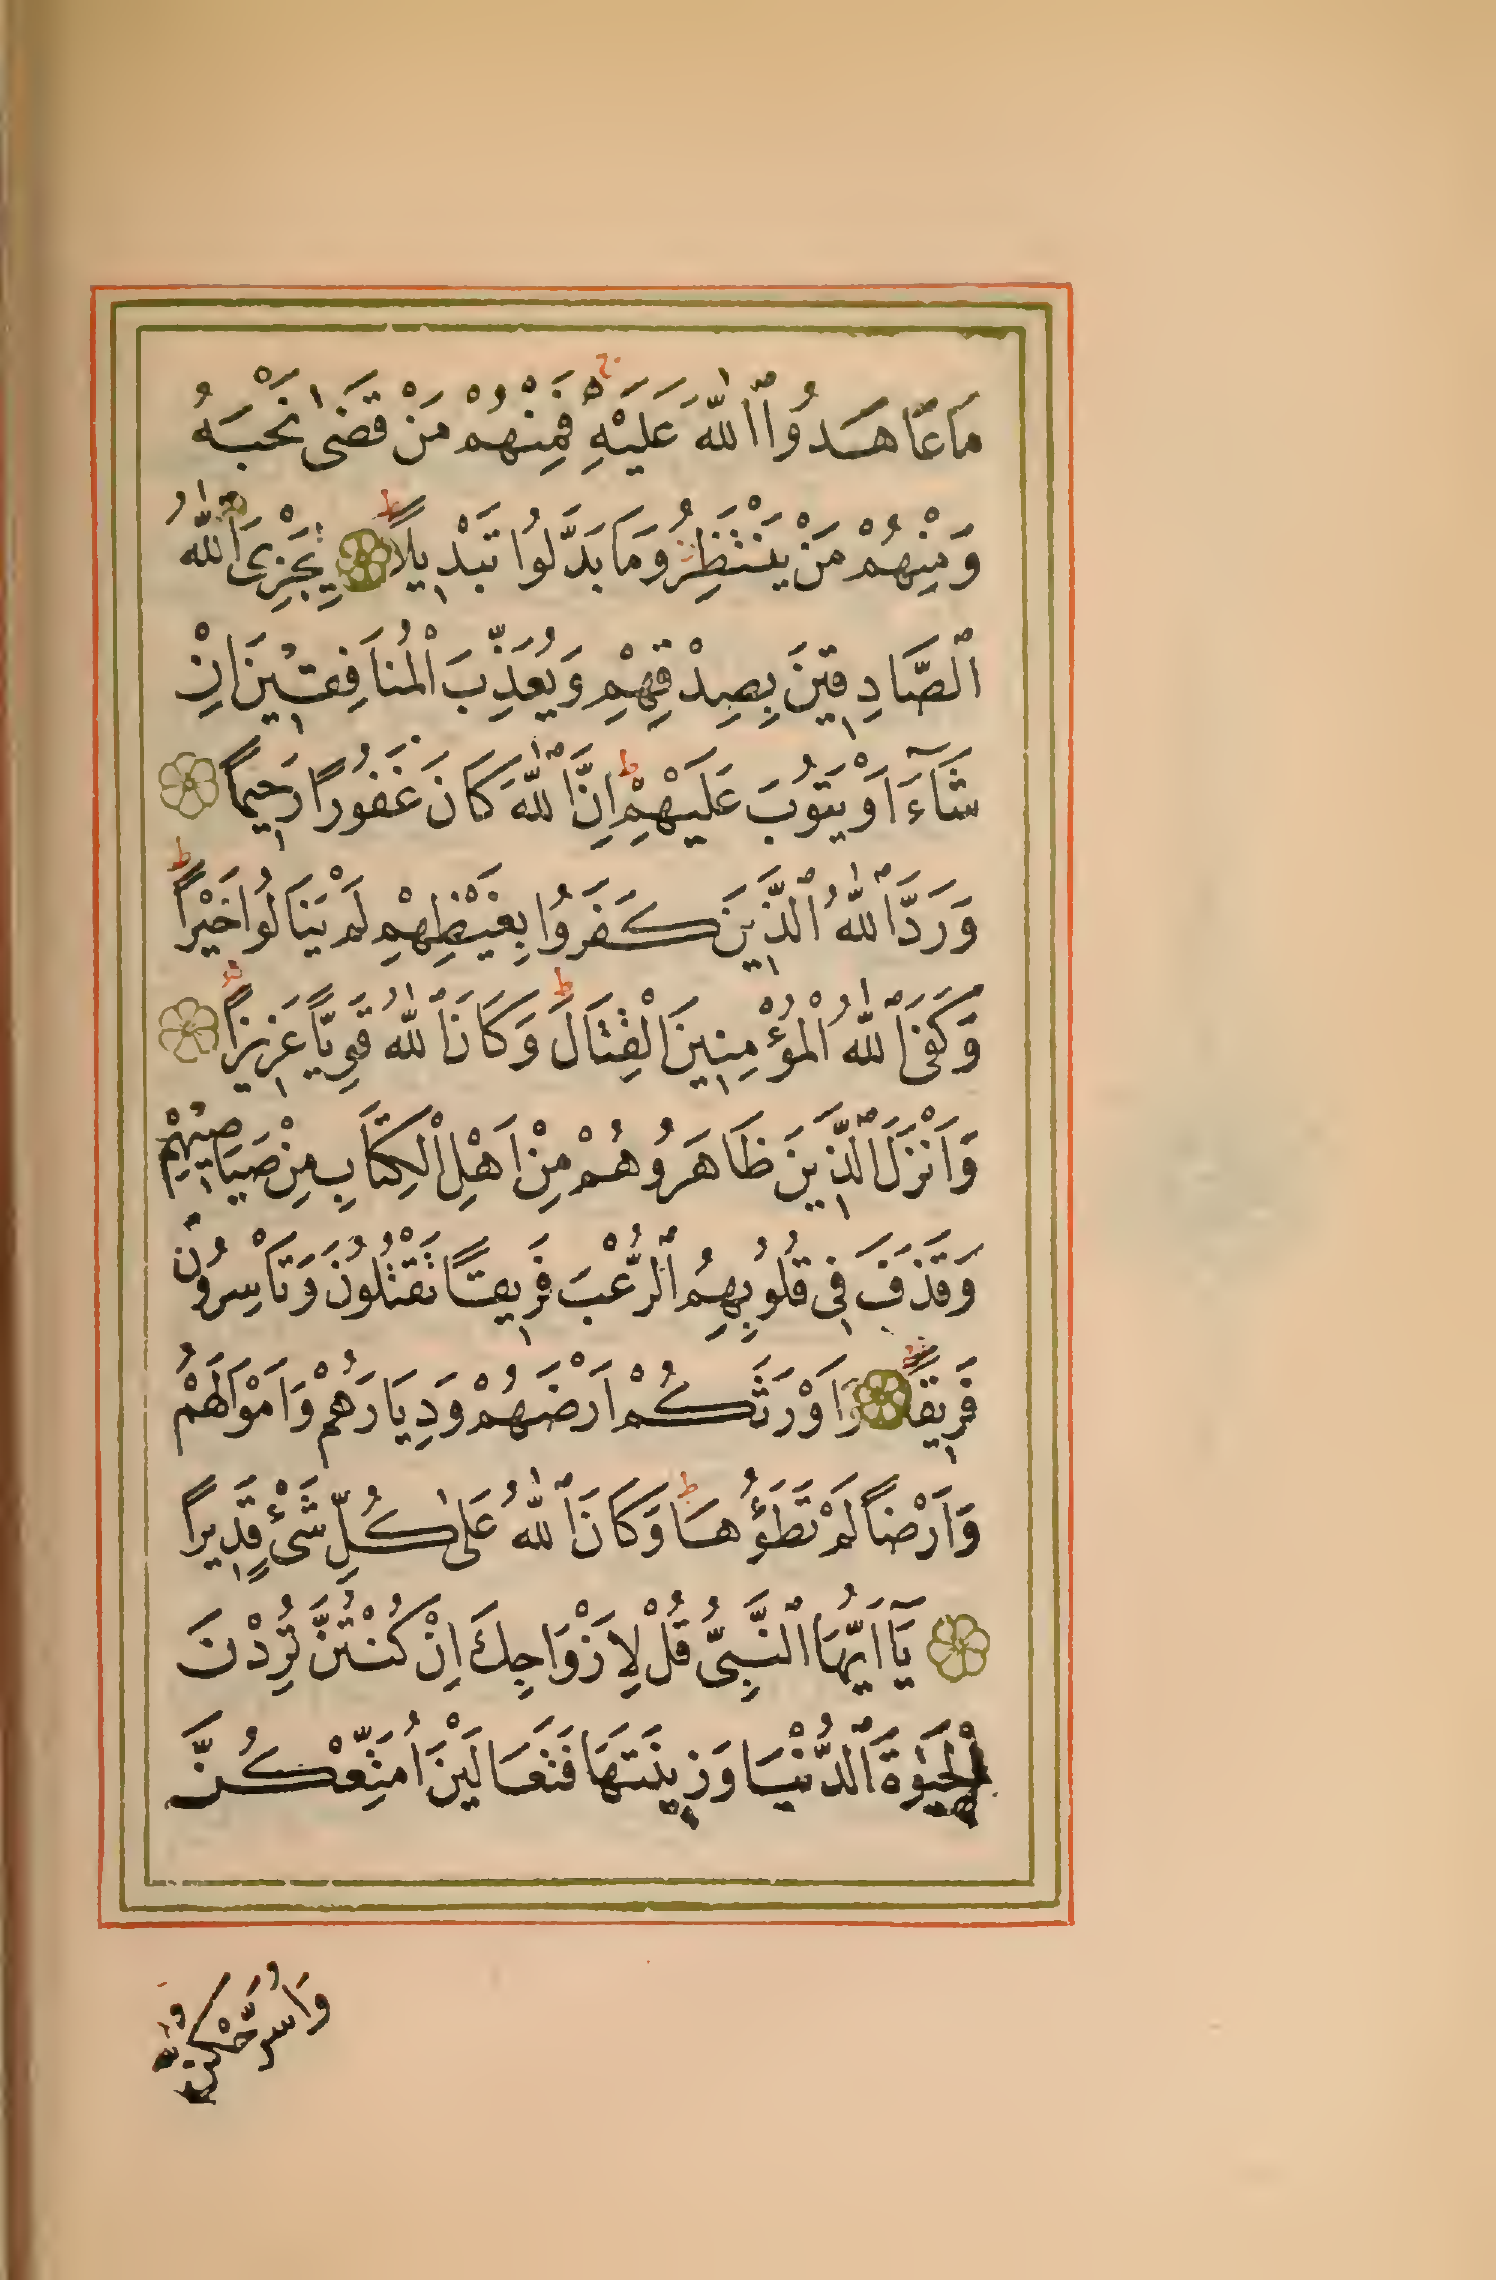 مَا عَاهَدُوا ٱللّٰهَ عَلَيْهِ فَمِنْهُمْ مَنْ قَضٰى نَحْبَهُ
وَمِنْهُمْ مَنْ يَنْتَظِرُ وَمَا بَدَّلُوا تَبْدِيلًا لِيَجْزِىَ ٱللّٰهُ
ٱلصَّادِقِينَ بِصِدْقِهِمْ وَيُعَذِّبَ ٱلْمُنَافِقِينَ اِنْ
شَآءَ اَوْ يَتُوبَ عَلَيْهِمْ اِنَّ ٱللّٰهَ كَانَ غَفُورًا رَحِيمًا
وَرَدَّ ٱللّٰهُ ٱلَّذِينَ كَفَرُوا بِغَيْظِهِمْ لَمْ يَنَالُوا خَيْرًا
وَكَفَى ٱللّٰهُ ٱلْمُؤْمِنِينَ الْقِتَالَ وَكَانَ ٱللّٰهُ قَوِيًّا عَزِيزًا
وَاَنْزَلَ ٱلَّذِينَ ظَاهَرُوهُمْ مِنْ اَهْلِ الْكِتَابِ مِنْ صَيَاصِيهِمْ
وَقَذَفَ فِى قُلُوبِهِمُ ٱلرُّعْبَ فَرِيقًا تَقْتُلُونَ وَتَاْسِرُونَ
فَرِيقًا وَاَوْرَثَكُمْ اَرْضَهُمْ وَدِيَارَهُمْ وَاَمْوَالَهُمْ
وَاَرْضًا لَمْ تَطَؤُهَا وَكَانَ ٱللّٰهُ عَلٰى كُلِّ شَىْءٍ قَدِيرًا
يَآ اَيُّهَا ٱلنَّبِىُّ قُلْ لِاَزْوَاجِكَ اِنْ كُنْتُنَّ تُرِدْنَ
ٱلْحَيٰوةَ ٱلدُّنْيَا وَزِينَتَهَا فَتَعَالَيْنَ اُمَتِّعْكُنَّ
وَاُسَرِّحْكُنَّ